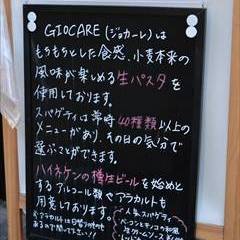 GIOCARE(ジョカーレ)は
もちもちとした食感、小麦本来の
風味が楽しめる生パスタを
使用しております。
スパゲティは常時40種類以上の
メニューがあり、その日の気分で
選ぶことができます。
ハイネケンの樽生ビールを始めと
するアルコール類やアラカルトも
用意しております。
人気スパゲティ